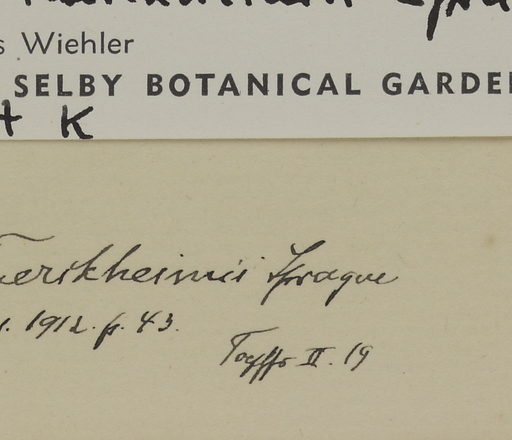 s Wiehler
SELBY BOTANICAL GARDE
t K
Tuerckheimii Sprague
1912. p. 43.
II. 19